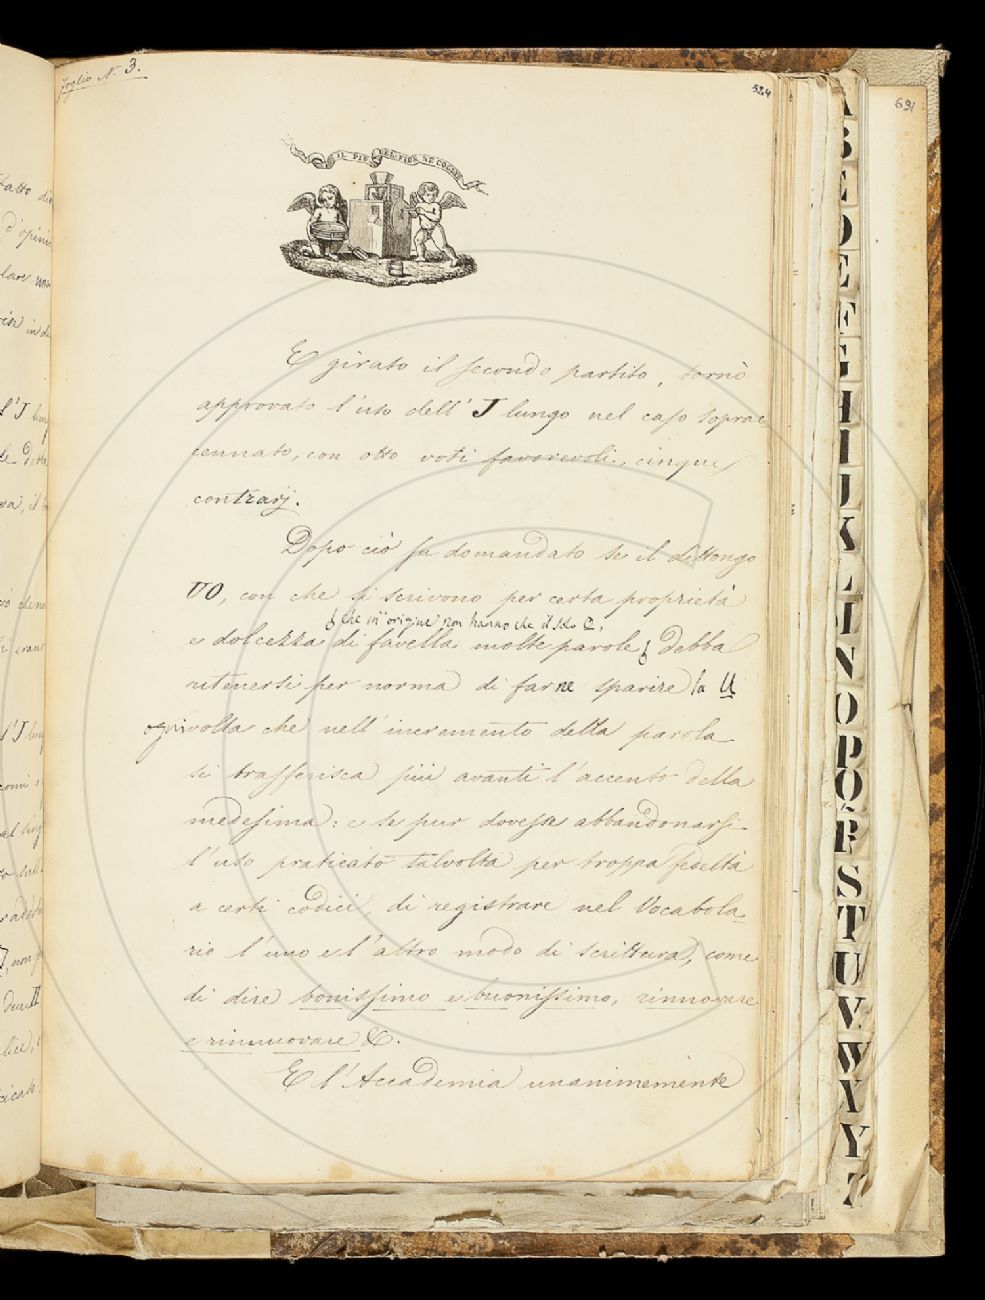 Foglio N. 3.
524
691
IL PIÙ BEL FIOR NE COGLIE
E girato il secondo partito, tornò
approvato l'uso dell' J lungo nel caso soprac
cennato, con otto voti favorevoli, cinque
contrarj.
Dopo ciò fu domandato se il dittongo
UO, con che si scrivono per certa proprietà
che in origine non hanno che il solo O,
e dolcezza di favella molte parole debba
ritenersi per norma di farne sparire la U
ogni volta che nell'incremento della parola
si trasferisca più avanti l'accento della
medesima: e se pur dovesse abbandonarsi
l'uso praticato talvolta per troppa fedeltà
a certi codici, di registrare nel Vocabola-
rio l'uno e l'altro modo di scrittura, come
di dire bonissimo e buonissimo, rinnovare
e rinnuovare &.
E l'Accademia unanimemente
A
B
C
D
E
F
G
H
I
J
K
L
M
N
O
P
Q
R
S
T
U
V
W
X
Y
Z